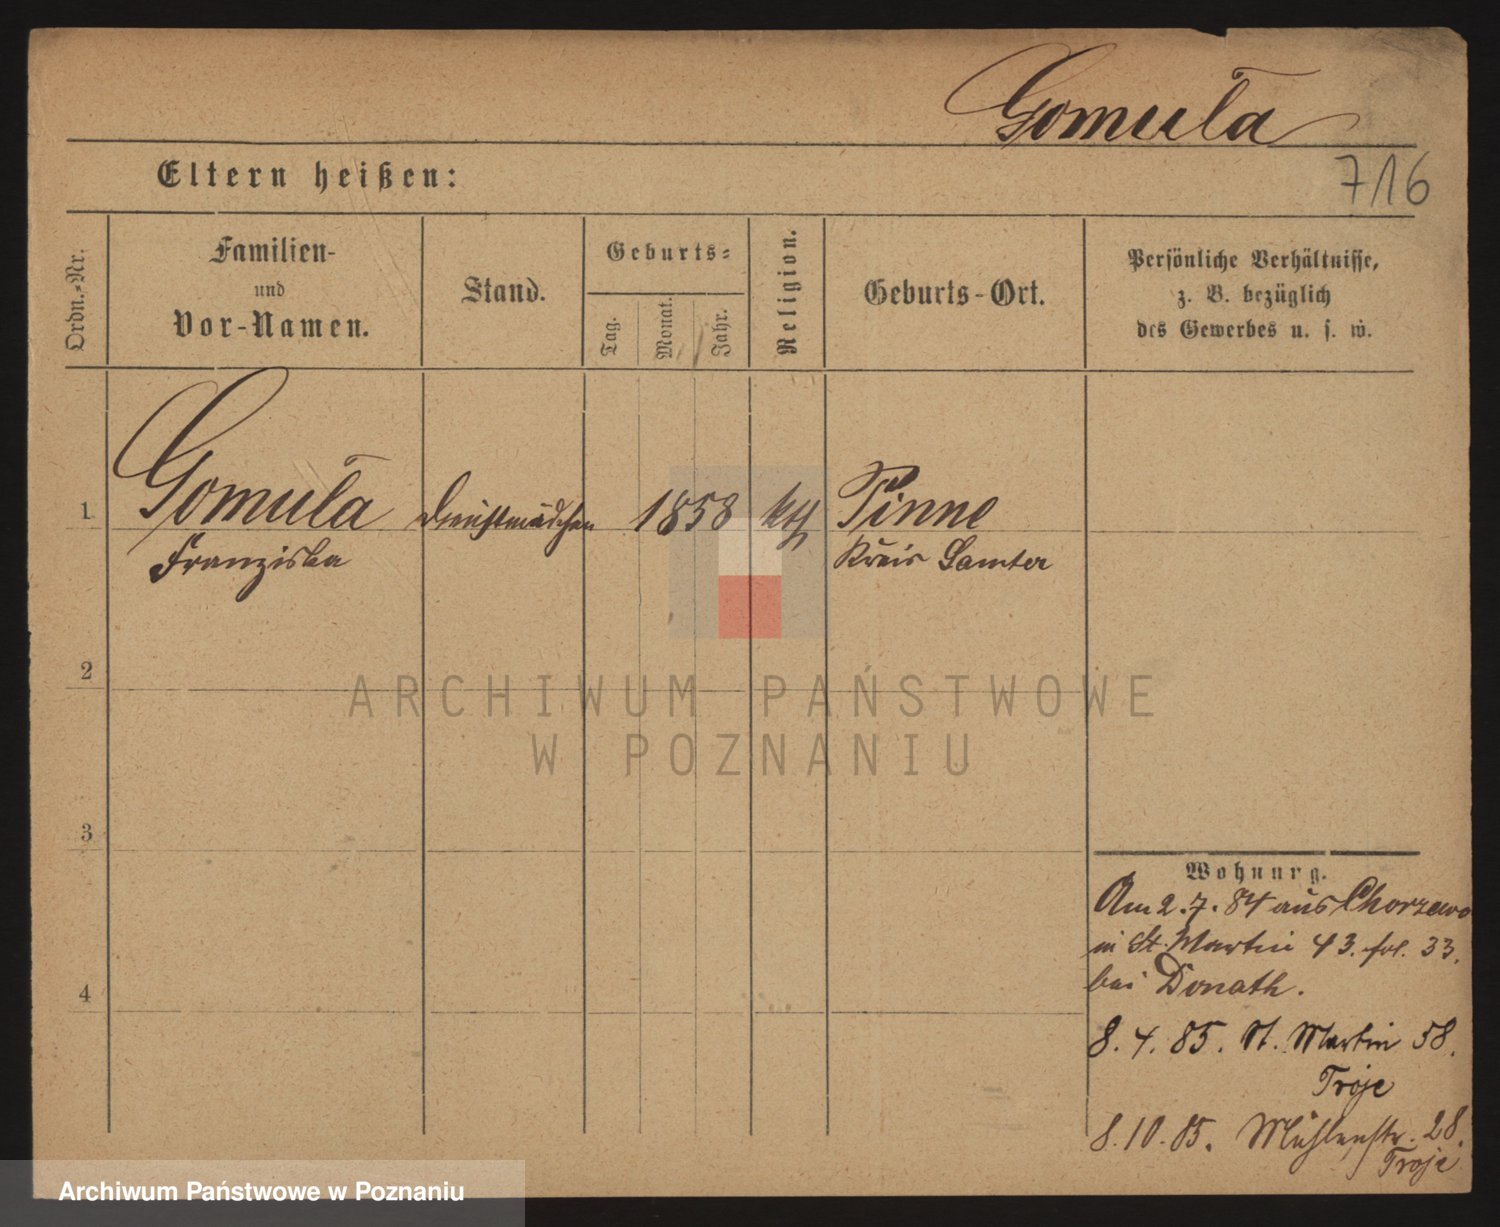 Gomula
Eltern heißen:
716
Ordn.-Nr.
Familien-
und
Vor-Namen.
Stand.
Geburts-
Tag.
Monat.
Jahr.
Religion.
Geburts-Ort.
Persönliche Verhältnisse,
z. B. bezüglich
des Gewerbes u. s. w.
1 Gomula Dienstmädchen 1858 kth Pinne
Franziska Kreis Samter
2
ARCHIWUM PAŃSTWOWE
W POZNANIU
3
Wohnung.
Am 2.7.84 aus Chorzewo
in St. Martin 43. fol. 33.
bei Donath.
4
8.4.85. St. Martin 58.
Troje
8.10.85. Mühlenstr. 28.
Troje
Archiwum Państwowe w Poznaniu